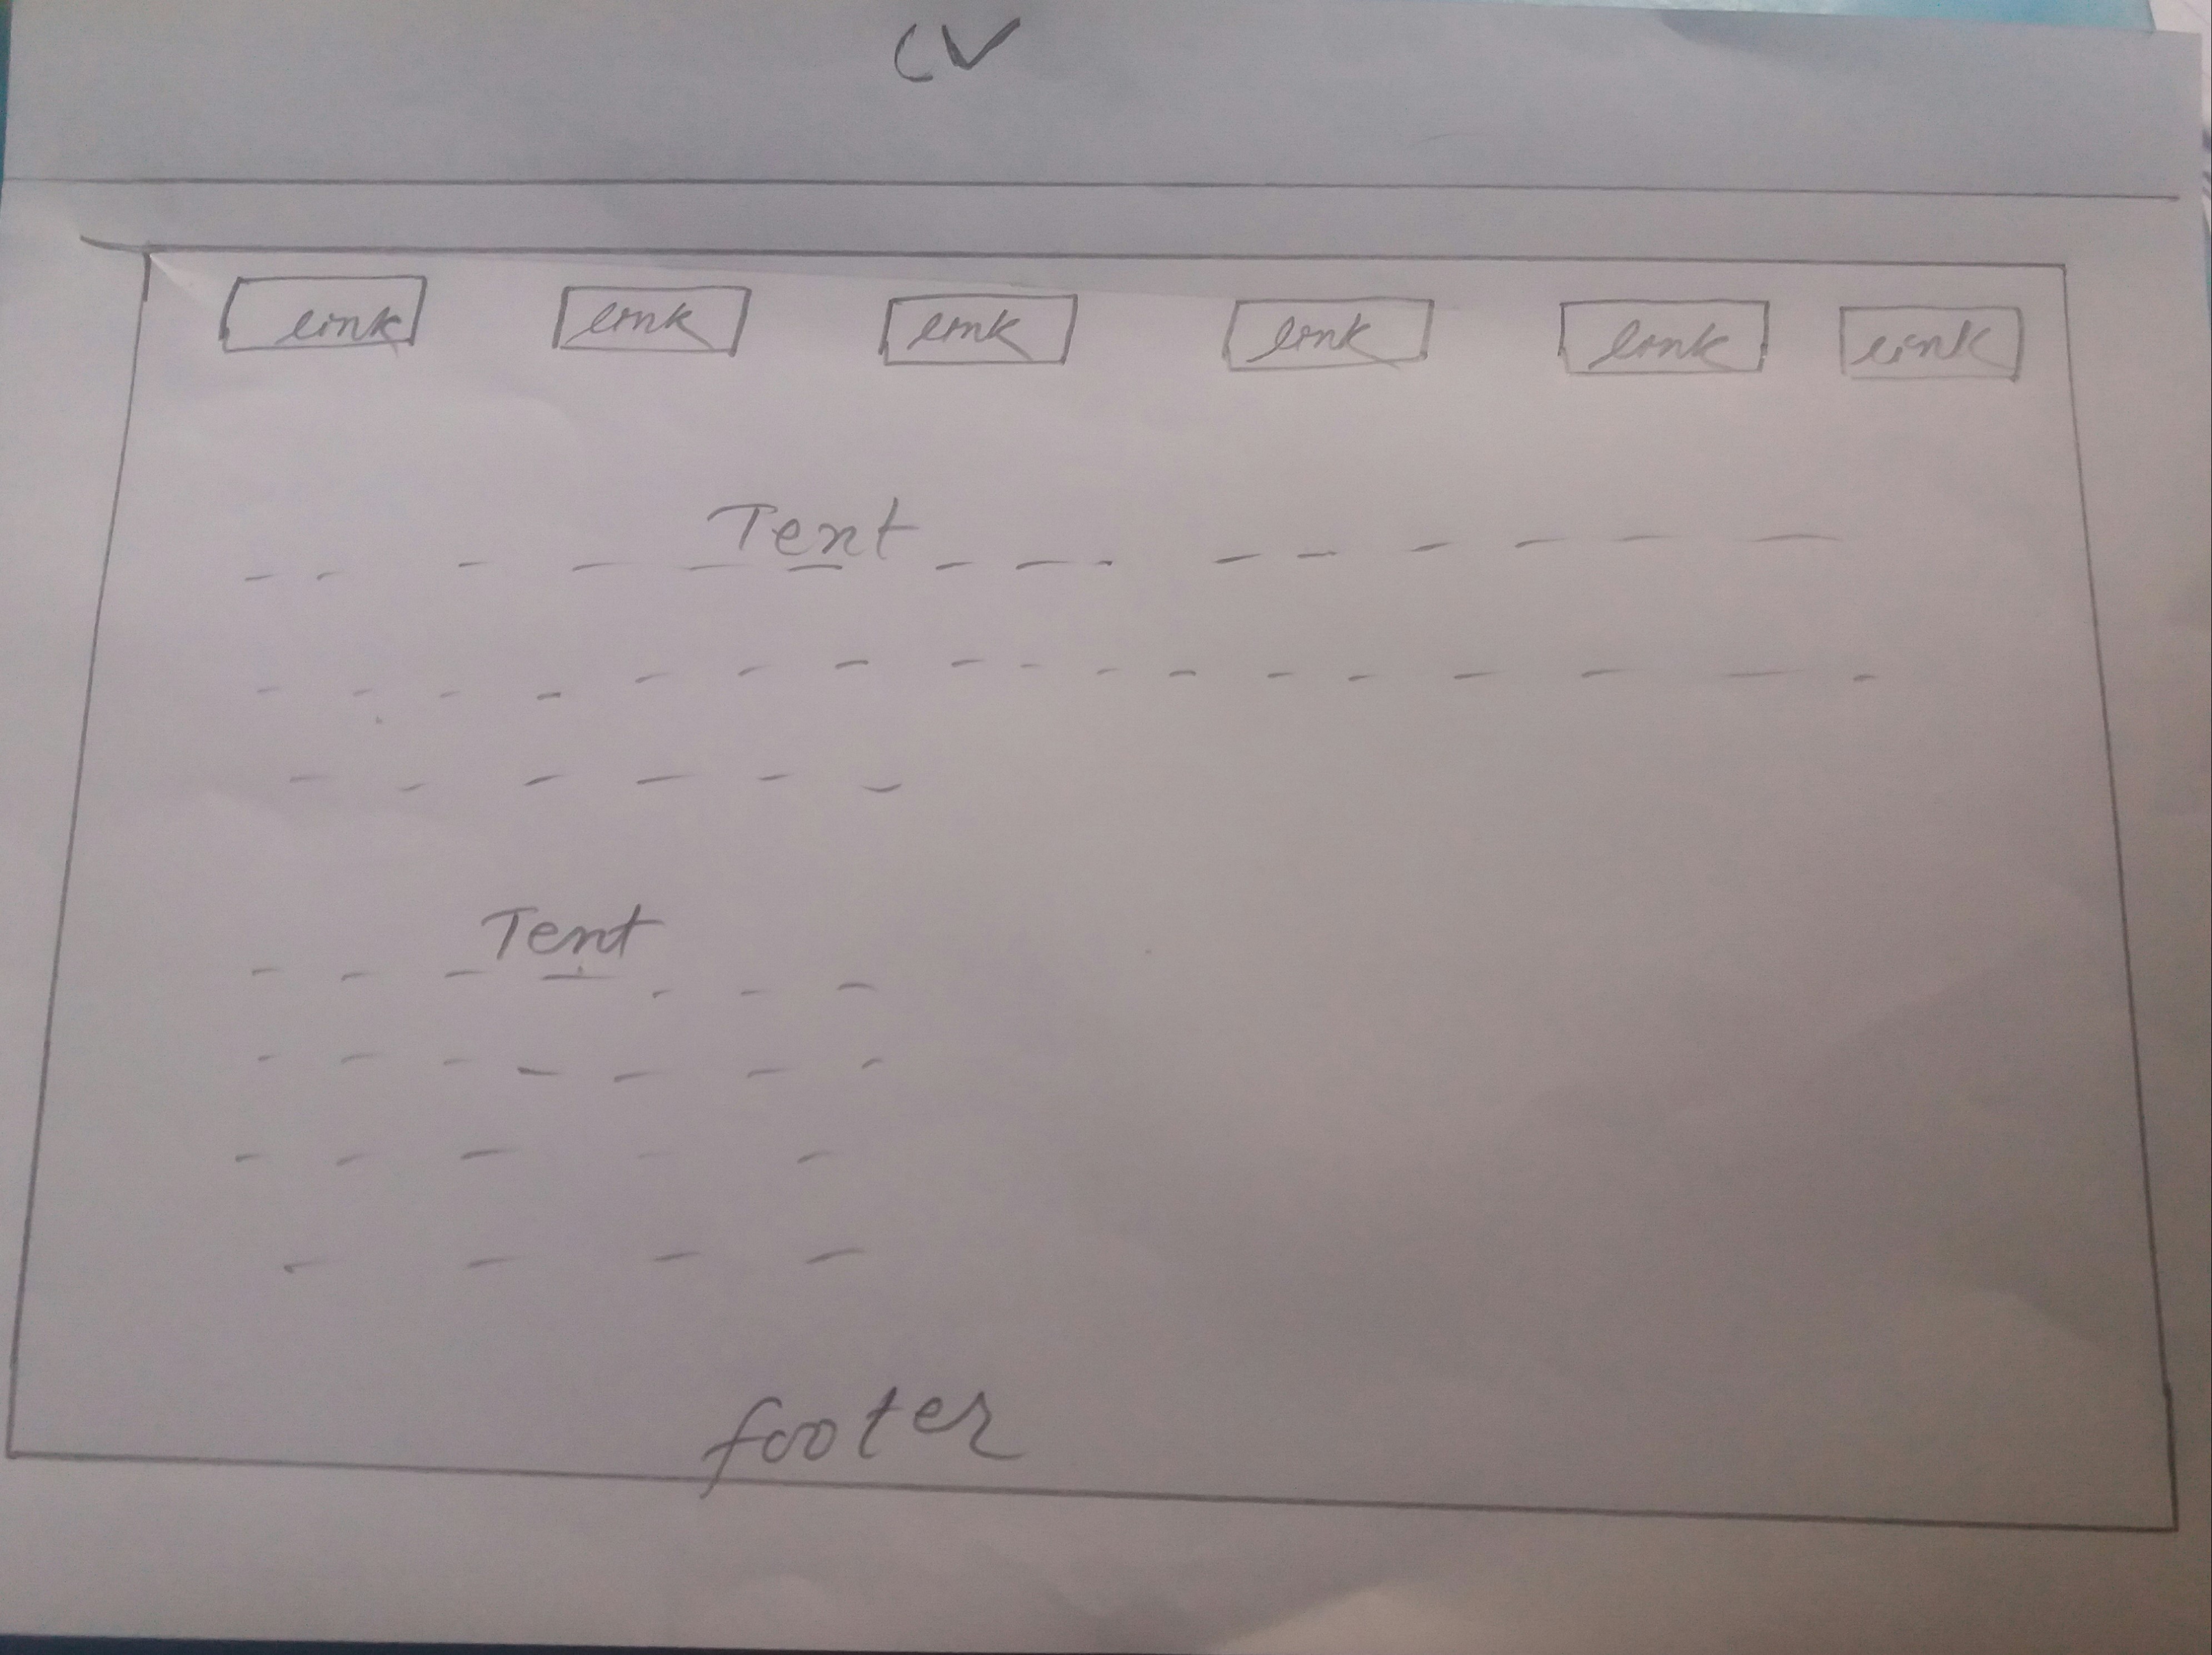 CV
link link link link link link
Text
Text
footer